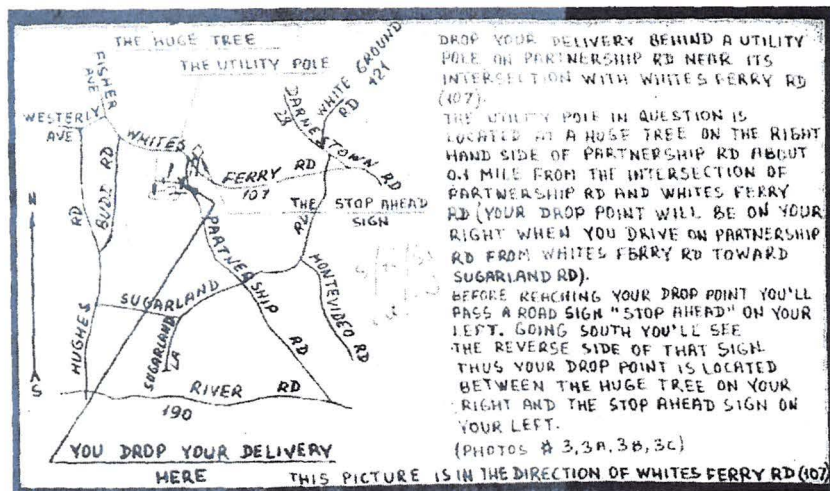 THE HUGE TREE
THE UTILITY POLE
FISHER
AVE
WESTERLY
AVE
WHITES
BUDD RD
DARNESTOWN RD
DR
WHITE GROUND
RD 121
FERRY RD
107
THE STOP AHEAD
SIGN
N
S
RD
PARTNERSHIP
RD
SUGARLAND
RD
MONTEVIDEO RD
HUGHES
SUGARLAND
LA
RIVER RD
190
YOU DROP YOUR DELIVERY
HERE
DROP YOUR DELIVERY BEHIND A UTILITY
POLE ON PARTNERSHIP RD NEAR ITS
INTERSECTION WITH WHITES FERRY RD
(107).
THE UTILITY POLE IN QUESTION IS
LOCATED AT A HUGE TREE ON THE RIGHT
HAND SIDE OF PARTNERSHIP RD ABOUT
0.1 MILE FROM THE INTERSECTION OF
PARTNERSHIP RD AND WHITES FERRY
RD (YOUR DROP POINT WILL BE ON YOUR
RIGHT WHEN YOU DRIVE ON PARTNERSHIP
RD FROM WHITES FERRY RD TOWARD
SUGARLAND RD).
BEFORE REACHING YOUR DROP POINT YOU'LL
PASS A ROAD SIGN "STOP AHEAD" ON YOUR
LEFT. GOING SOUTH YOU'LL SEE
THE REVERSE SIDE OF THAT SIGN.
THUS YOUR DROP POINT IS LOCATED
BETWEEN THE HUGE TREE ON YOUR
RIGHT AND THE STOP AHEAD SIGN ON
YOUR LEFT.
(PHOTOS # 3,3A,3B,3C)
THIS PICTURE IS IN THE DIRECTION OF WHITES FERRY RD (107)